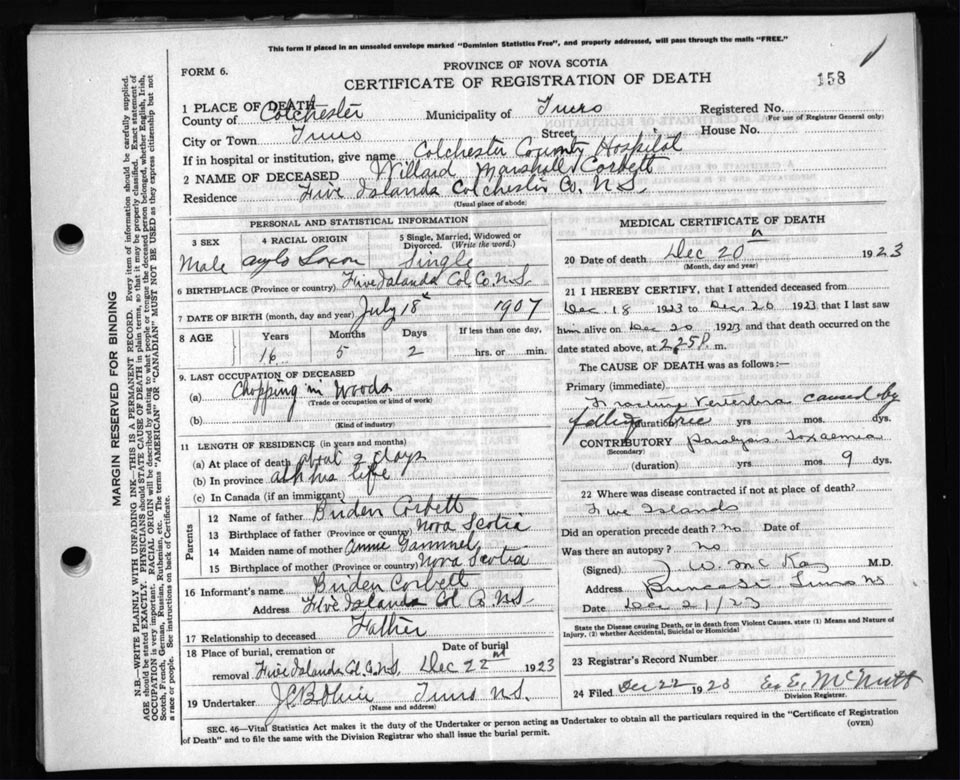 This form if placed in an unsealed envelope marked "Dominion Statistics Free", and properly addressed, will pass through the mails "FREE."
FORM 6.
PROVINCE OF NOVA SCOTIA
CERTIFICATE OF REGISTRATION OF DEATH
158
1 PLACE OF DEATH
County of Colchester Municipality of Truro Registered No.
For use of Registrar General only)
City or Town Truro Street House No.
If in hospital or institution, give name Colchester County Hospital
2 NAME OF DECEASED Willard Marshall Corbett
Residence Five Islands Colchester Co. N.S.
(Usual place of abode)
PERSONAL AND STATISTICAL INFORMATION
3 SEX Male
4 RACIAL ORIGIN Anglo Saxon
5 Single, Married, Widowed or Divorced. (Write the word.) Single
6 BIRTHPLACE (Province or country) Five Islands Col. Co. N.S.
7 DATE OF BIRTH (month, day and year) July 18 1907
8 AGE Years Months Days If less than one day,
16 5 2 hrs. or min.
9. LAST OCCUPATION OF DECEASED
(a) Chopping in Woods
(Trade or occupation or kind of work)
(b)
(Kind of industry)
11 LENGTH OF RESIDENCE (in years and months)
(a) At place of death about 2 days
(b) In province all his life
(c) In Canada (if an immigrant)
Parents
12 Name of father Briden Corbett
13 Birthplace of father (Province or country) Nova Scotia
14 Maiden name of mother Annie Gammel
15 Birthplace of mother (Province or country) Nova Scotia
16 Informant's name Briden Corbett
Address Five Islands Col Co NS
17 Relationship to deceased Father
18 Place of burial, cremation or removal Five Islands Col. Co. N.S.
Date of burial Dec 22 1923
19 Undertaker Truro N.S.
(Name and address)
MEDICAL CERTIFICATE OF DEATH
20 Date of death Dec 20 1923
(Month, day and year)
21 I HEREBY CERTIFY, that I attended deceased from
Dec. 18 1923 to Dec. 20 1923 that I last saw
him alive on Dec 20 1923 and that death occurred on the
date stated above, at 2.25 P. m.
The CAUSE OF DEATH was as follows:—
Primary (immediate)
Fracture Vertebra caused by
falling tree (duration) yrs mos. dys.
CONTRIBUTORY Paralysis Toxaemia
(Secondary)
(duration) yrs. mos. 9 dys.
22 Where was disease contracted if not at place of death?
Five Islands
Did an operation precede death? no Date of
Was there an autopsy? no
(Signed) J. W. McKay M.D.
Address Truro NS
Date Dec 21/23
State the Disease causing Death, or in death from Violent Causes, state (1) Means and Nature of Injury, (2) whether Accidental, Suicidal or Homicidal
23 Registrar's Record Number
24 Filed Dec 22 1923 McNutt
Division Registrar.
SEC. 46—Vital Statistics Act makes it the duty of the Undertaker or person acting as Undertaker to obtain all the particulars required in the "Certificate of Registration
of Death" and to file the same with the Division Registrar who shall issue the burial permit.
(OVER)
MARGIN RESERVED FOR BINDING
N.B.—WRITE PLAINLY WITH UNFADING INK—THIS IS A PERMANENT RECORD. Every item of information should be carefully supplied.
AGE should be stated EXACTLY. PHYSICIANS should STATE CAUSE OF DEATH in plain terms, so that it may be properly classified. Exact statement of
OCCUPATION is very important. RACIAL ORIGIN will be described by stating to what people or tongue the deceased person belonged, whether English, Irish,
Scotch, French, German, Russian, Ruthenian, etc. The terms "AMERICAN" or "CANADIAN" MUST NOT BE USED as they express citizenship but not
a race or people. See instructions on back of Certificate.